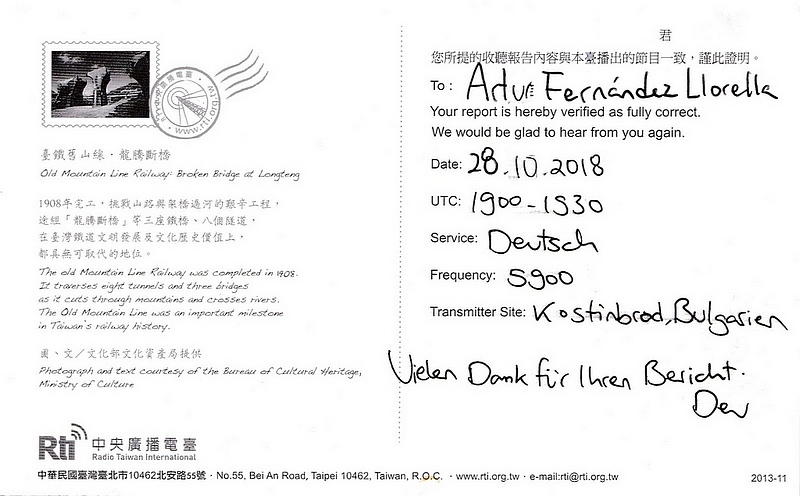 中央廣播電臺
www.rti.org
臺鐵舊山線．龍騰斷橋
Old Mountain Line Railway: Broken Bridge at Longteng
1908年完工，挑戰山路與架橋過河的艱辛工程，
途經「龍騰斷橋」等三座鐵橋、八個隧道，
在臺灣鐵道文明發展及文化歷史價值上，
都具無可取代的地位。
The old Mountain Line Railway was completed in 1908.
It traverses eight tunnels and three bridges
as it cuts through mountains and crosses rivers.
The Old Mountain Line was an important milestone
in Taiwan's railway history.
圖、文／文化部文化資產局提供
Photograph and text courtesy of the Bureau of Cultural Heritage,
Ministry of Culture
Rti 中央廣播電臺
Radio Taiwan International
君
您所提的收聽報告內容與本臺播出的節目一致，謹此證明。
To : Artur Fernández Llorella
Your report is hereby verified as fully correct.
We would be glad to hear from you again.
Date: 28.10.2018
UTC: 1900-1930
Service: Deutsch
Frequency: 5900
Transmitter Site: Kostinbrod, Bulgarien
Vielen Dank für Ihren Bericht.
中華民國臺灣臺北市10462北安路55號．No.55, Bei An Road, Taipei 10462, Taiwan, R.O.C. ．www.rti.org.tw ．e-mail:rti@rti.org.tw
2013-11